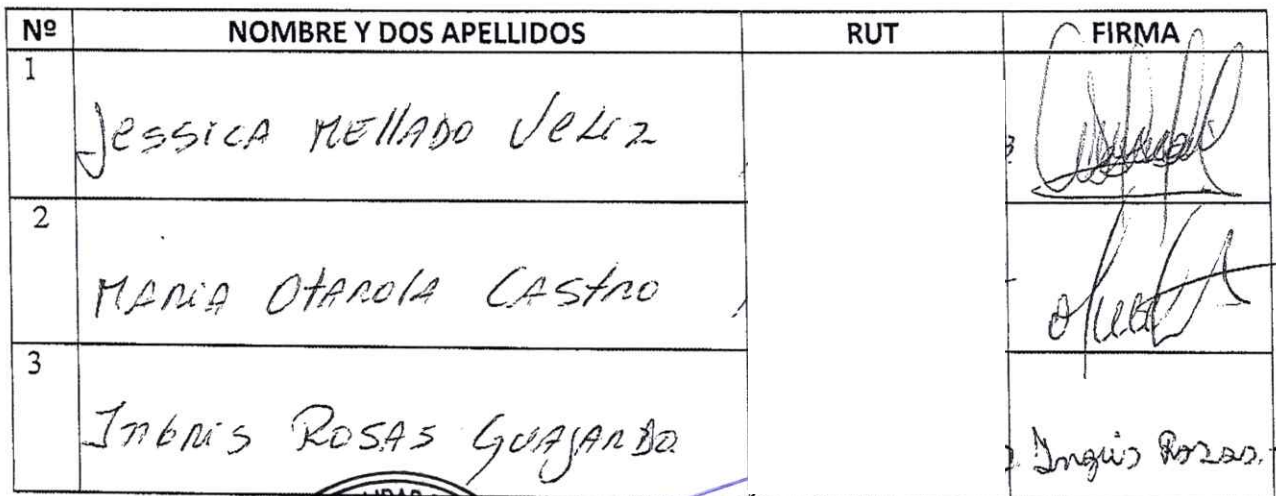 Nº NOMBRE Y DOS APELLIDOS RUT FIRMA
1 Jessica Mellado Veliz
2 Maria Otarola Castro
3 Ingris Rosas Guajardo Ingris Rosas